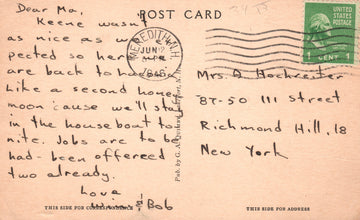 POST CARD
Dear Ma,
Keene wasn't
as nice as we ex
pected so here we
are back to
Like a second honey
moon 'cause we'll stay
in the houseboat to
nite. Jobs are to be
had - been offered
two already.
Love
& Bob
THIS SIDE FOR CORRESPONDENCE
MEREDITH N.H.
JUN 2
1946
UNITED
STATES
POSTAGE
1 CENT 1
Mrs. D Hochreiter
87-50 111 Street
Richmond Hill, 18
New York
THIS SIDE FOR ADDRESS